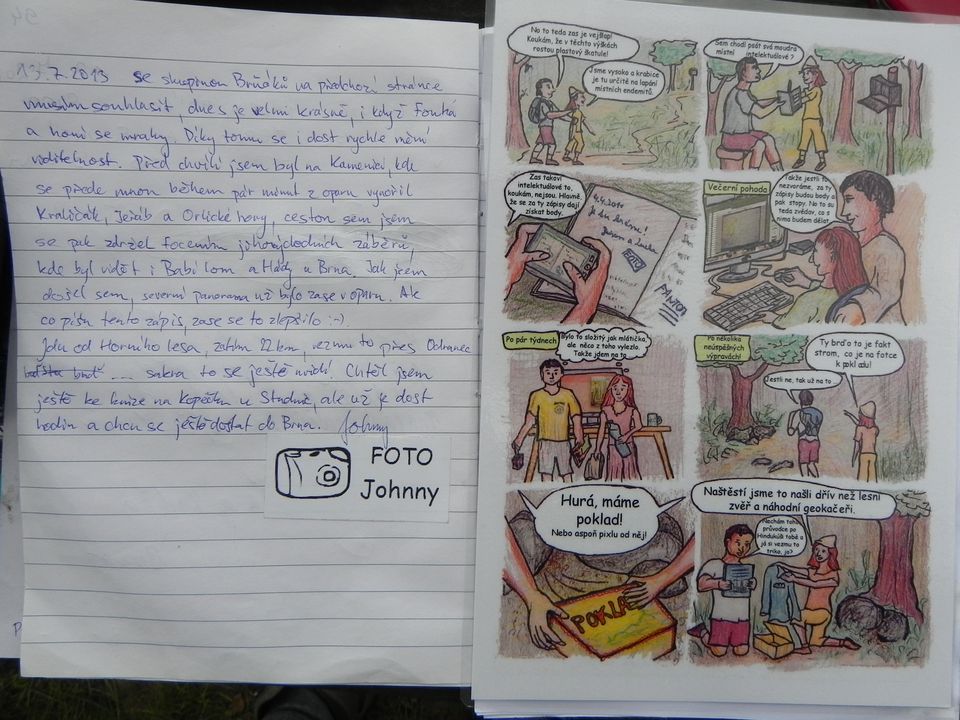 94
13.7.2013 se skupinou Brňáků na předchozí stránce
musím souhlasit, dnes je velmi krásně, i když fouká
a honí se mraky. Díky tomu se i dost rychle mění
viditelnost. Před chvílí jsem byl na Kamenici, kde
se přede mnou během pár minut z oparu vynořil
Kraličák, Jeřáb a Orlické hory, cestou sem jsem
se pak zdržel focením jihovýchodních záběrů,
kde byl vidět i Babí lom a Hády u Brna. Jak jsem
došel sem, severní panorama už bylo zase v oparu. Ale
co píšu tento zápis, zase se to zlepšilo :-).
Jdu od Horního lesa, zatím 22 km, vezmu to přes Odranec
.... sakra to se ještě
Chtěl jsem
ještě ke knize na Kopečku u Studnic, ale už je dost
hodin a chci se ještě dostat do Brna. Johnny
FOTO
Johnny
No to teda zas je vejšlap!
Koukám, že v těchto výškách
rostou plastový škatule!
Jsme vysoko a krabice
je tu určitě na lapání
místních endemitů.
Sem chodí psát svá moudra
místní intelektuálové?
Zas takoví
intelektuálové to,
koukám, nejsou. Hlavně,
že se za ty zápisy dají
získat body.
4.4.2010
POTVO!
Večerní pohoda
Takže jestli to
nezvoráme, za ty
zápisy budou body a
pak stopy. No to su
teda zvědav, co s
nima budem dělat.
Po pár týdnech
Bylo to složitý jak mlátička,
ale něco z toho vylezlo.
Takže jdem na to.
Po několika
neúspěšných
výpravách!
Jestli ne, tak už na to ...
Ty brďo to je fakt
strom, co je na fotce
k pokladu!
Hurá, máme
poklad!
Nebo aspoň pixlu od něj!
POKLAD
Naštěstí jsme to našli dřív než lesní
zvěř a náhodní geokačeři.
Nechám toho
průvodce po
Hindukúši tobě a
já si vezmu to
triko, jo?